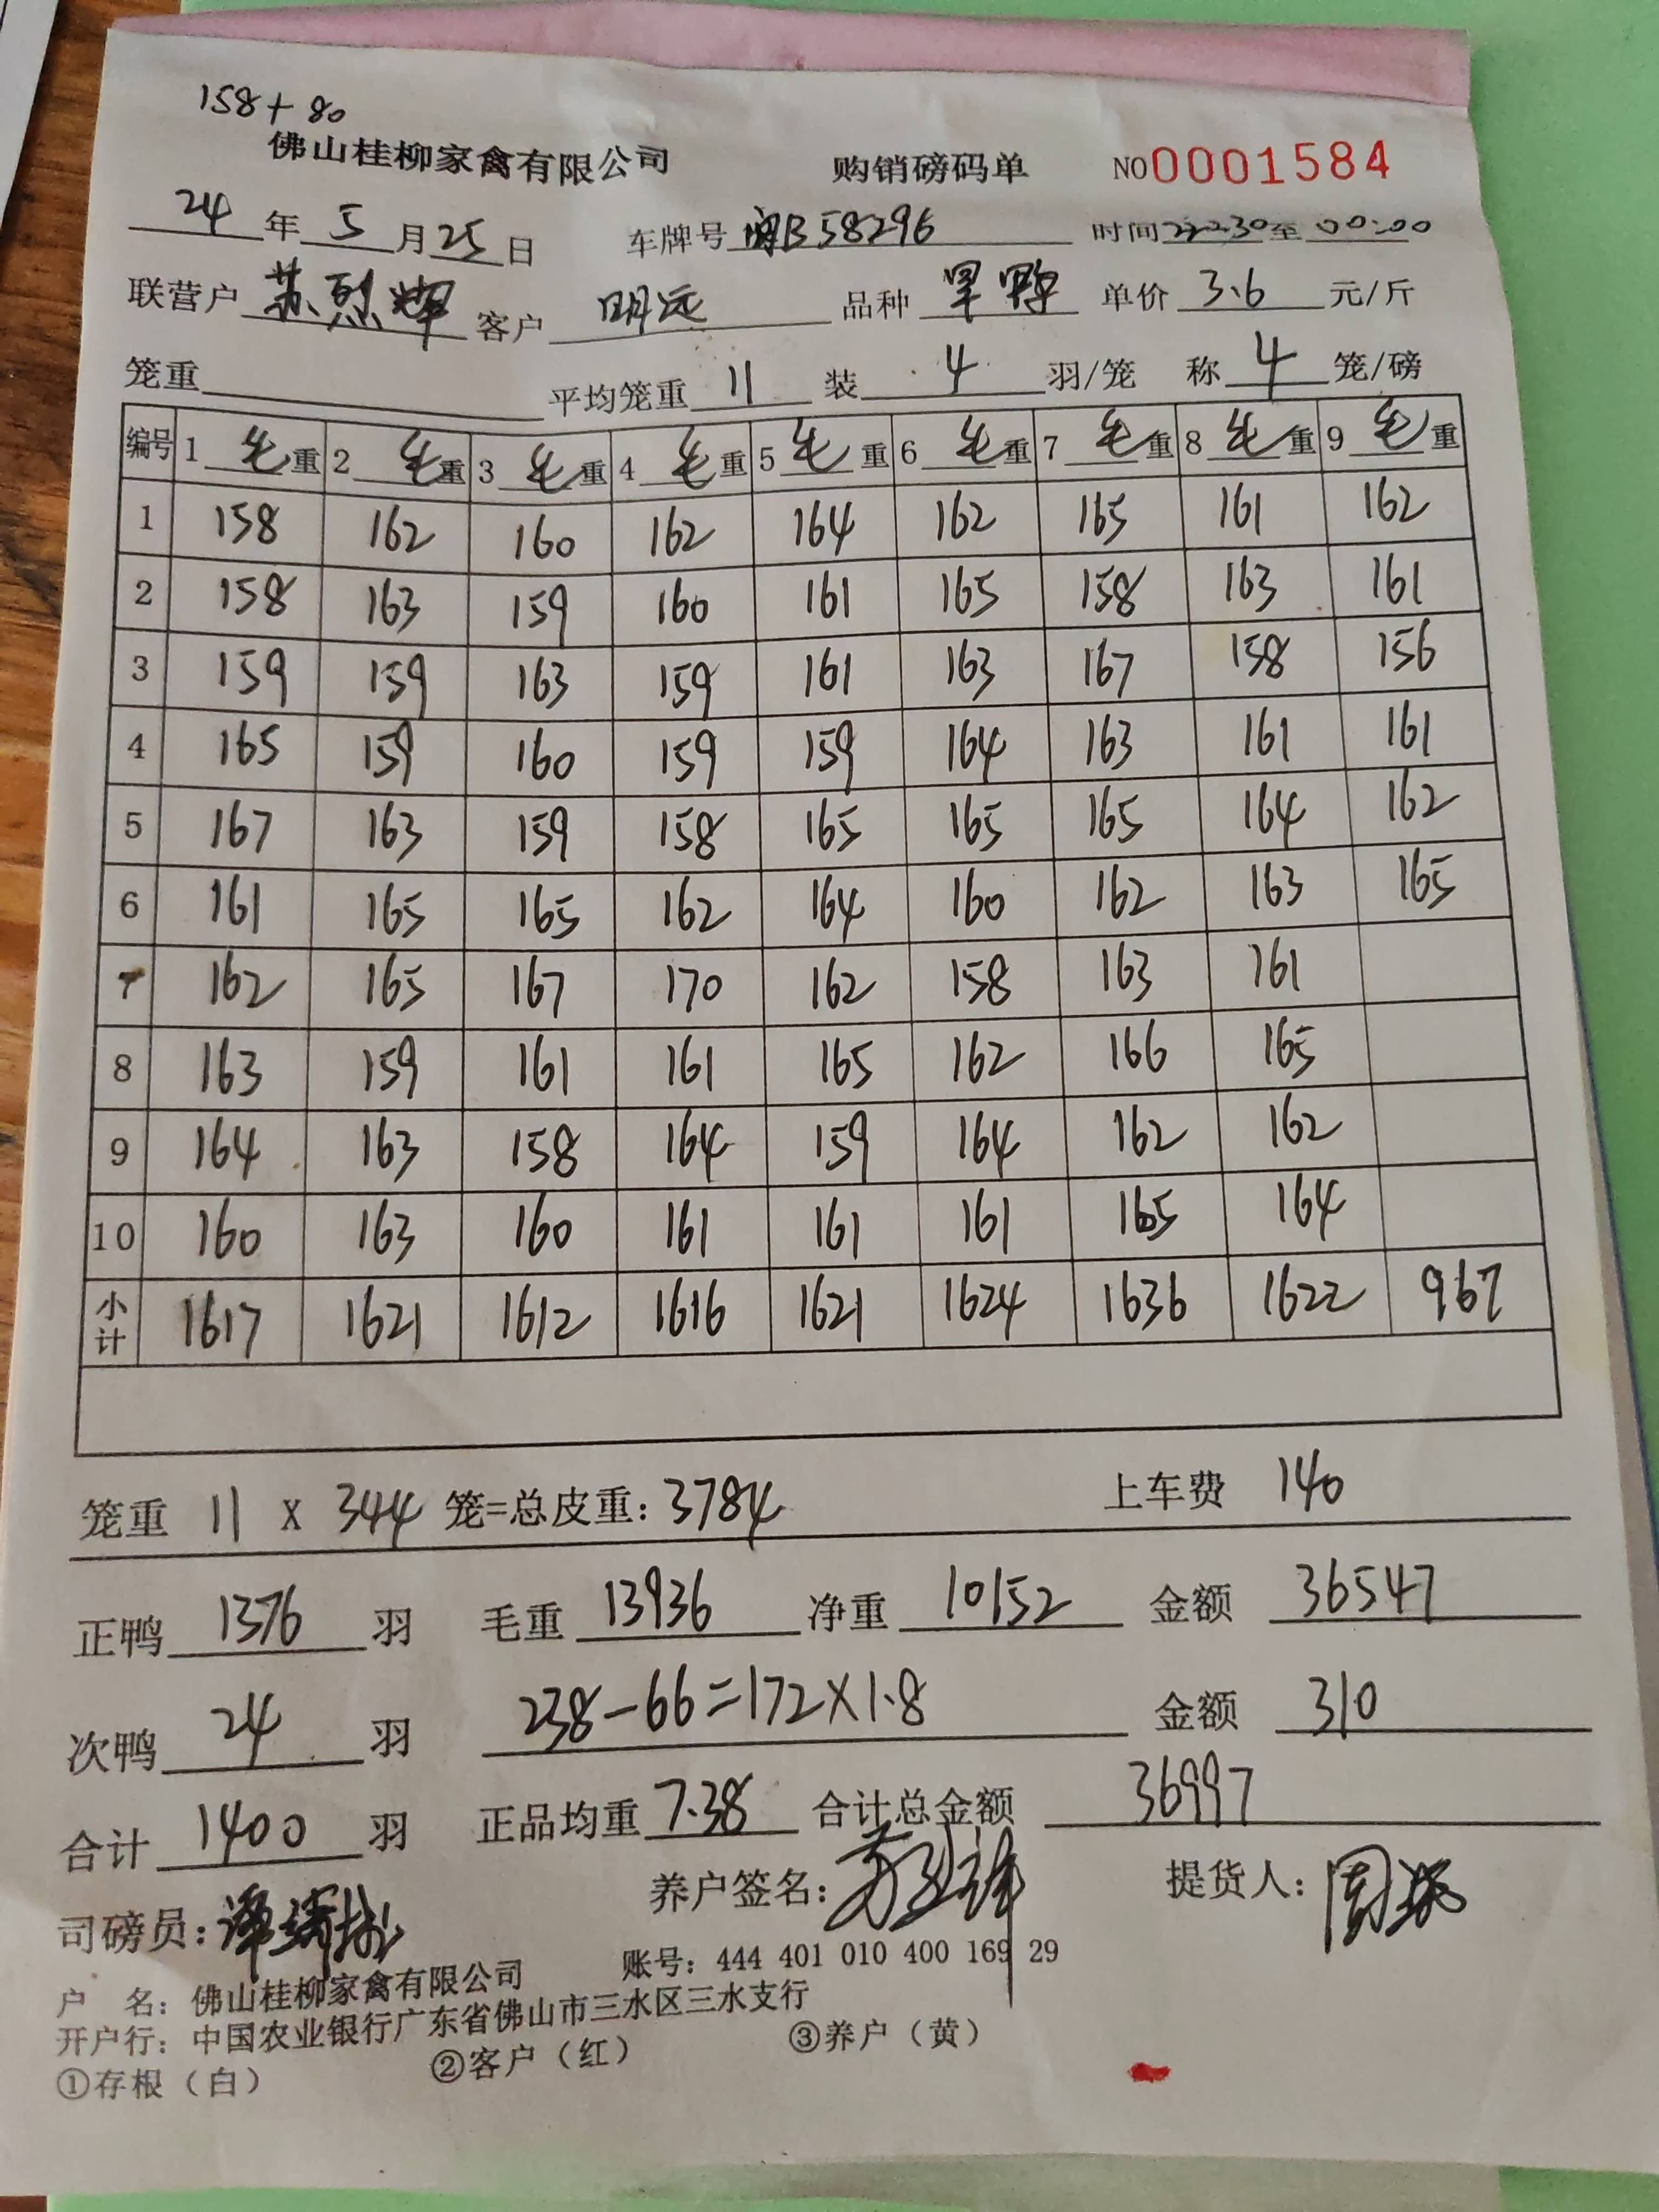 158+80
佛山桂柳家禽有限公司 购销磅码单 NO 0001584
24年5月25日 车牌号 B58296 时间22:30至00:00
联营户 苏烈辉 客户 明远 品种 旱鸭 单价 3.6 元/斤
笼重 平均笼重 11 装 4 羽/笼 称 4 笼/磅
编号 1 毛重 2 毛重 3 毛重 4 毛重 5 毛重 6 毛重 7 毛重 8 毛重 9 毛重
1 158 162 160 162 164 162 165 161 162
2 158 163 159 160 161 165 158 163 161
3 159 159 163 159 161 163 167 158 156
4 165 159 160 159 159 164 163 161 161
5 167 163 159 158 165 165 165 164 162
6 161 165 165 162 164 160 162 163 165
7 162 165 167 170 162 158 163 161
8 163 159 161 161 165 162 166 165
9 164 163 158 164 159 164 162 162
10 160 163 160 161 161 161 165 164
小计 1617 1621 1612 1616 1621 1624 1636 1622 967
笼重 11 X 344 笼=总皮重: 3784 上车费 140
正鸭 1376 羽 毛重 13936 净重 10152 金额 36547
次鸭 24 羽 238-66=172×1.8 金额 310
合计 1400 羽 正品均重 7.38 合计总金额 36997
司磅员: 养户签名: 提货人:
户 名: 佛山桂柳家禽有限公司 账号: 444 401 010 400 169 29
开户行: 中国农业银行广东省佛山市三水区三水支行
①存根（白） ②客户（红） ③养户（黄）